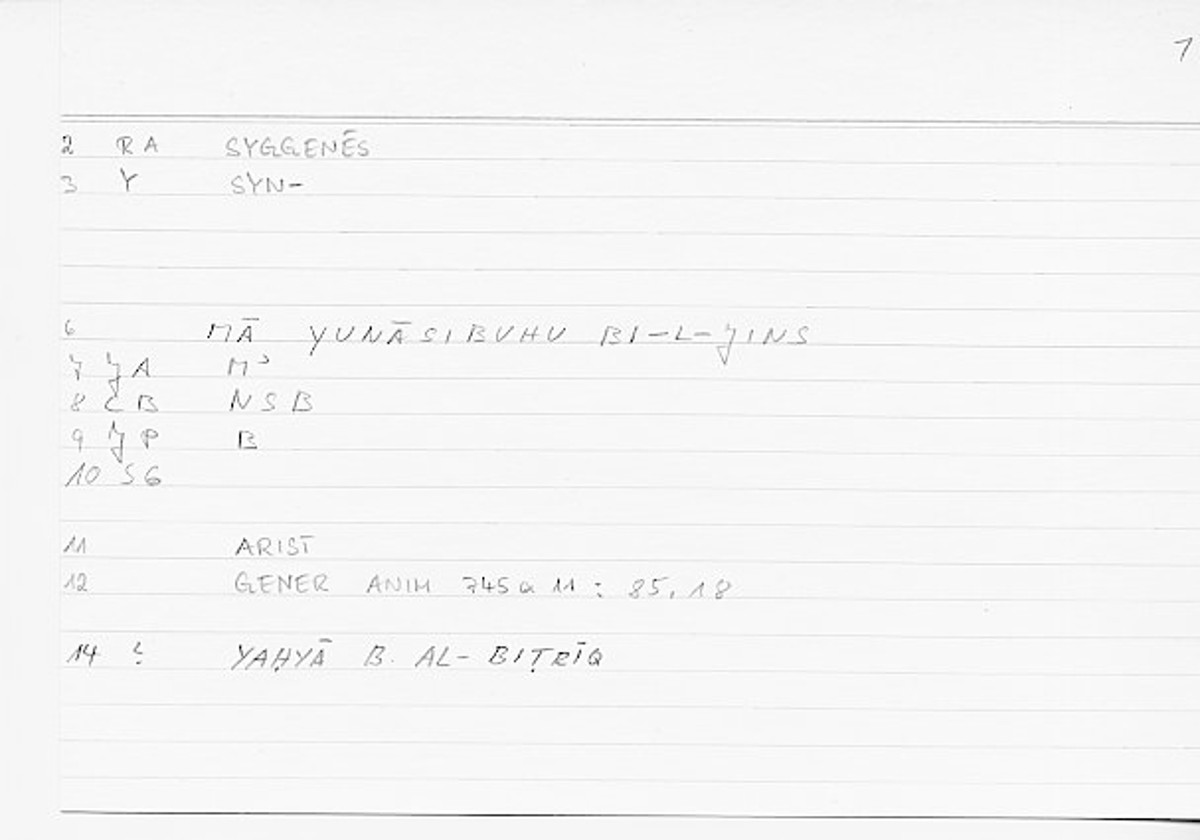 1
2 RA SYGGENĒS
3 Y SYN-
6 MĀ YUNĀSIBUHU BI-L-JINS
7 JA Mʾ
8 CB NSB
9 JP B
10 SG
11 ARIST
12 GENER ANIM 745a 11 : 85,18
14 YAḤYĀ B. AL-BIṬRĪQ